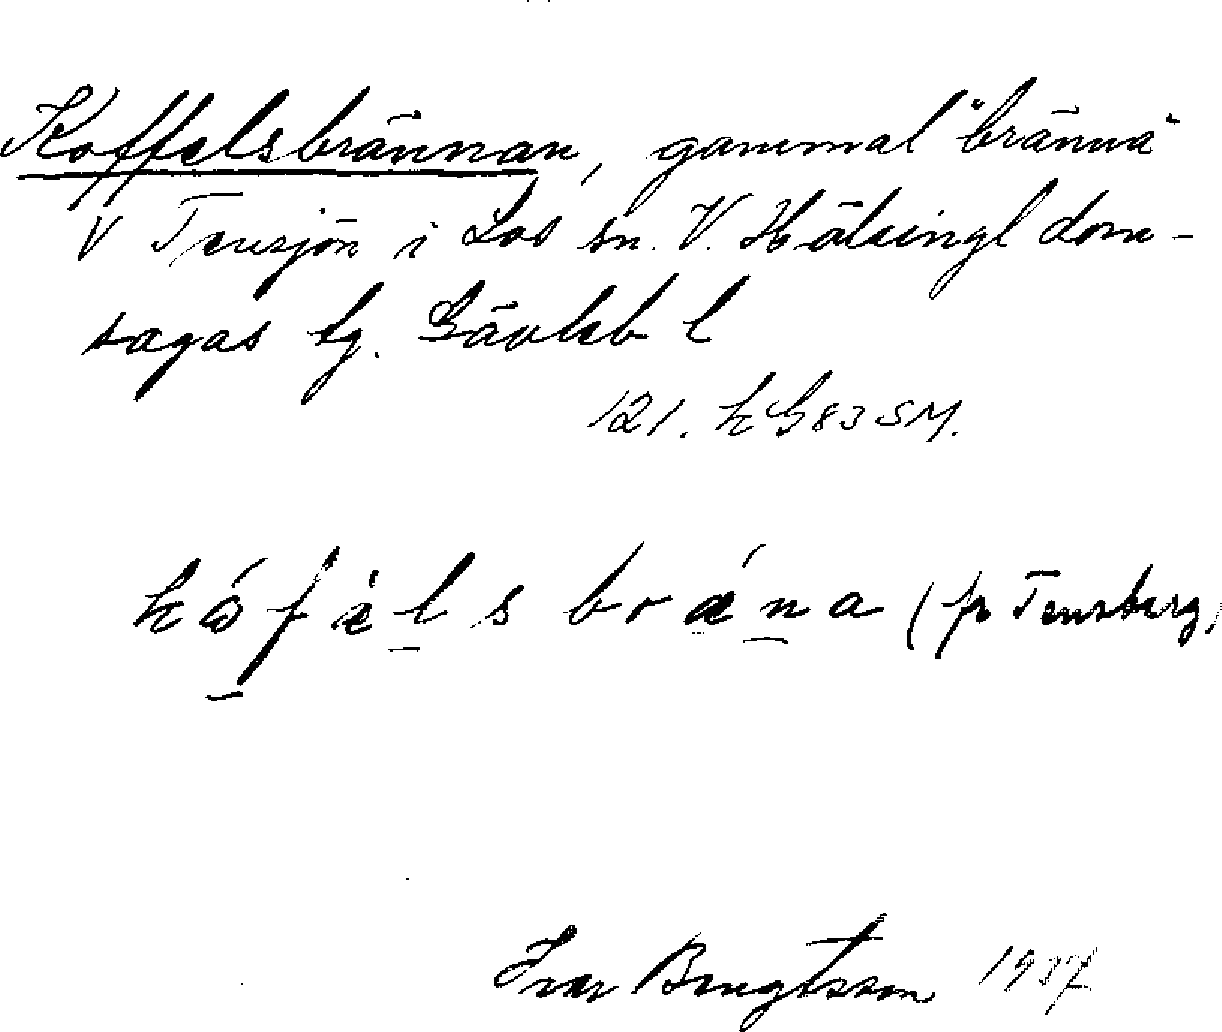 Koffelsbrännan, gammal "bränna"
V Tensjön i Los sn. V. Hälsingl dom-
sagas tg. Gävleb l
121. HG83 SM.
kófəls bræna (fr Tensberg)
Ivar Bengtsson 1937